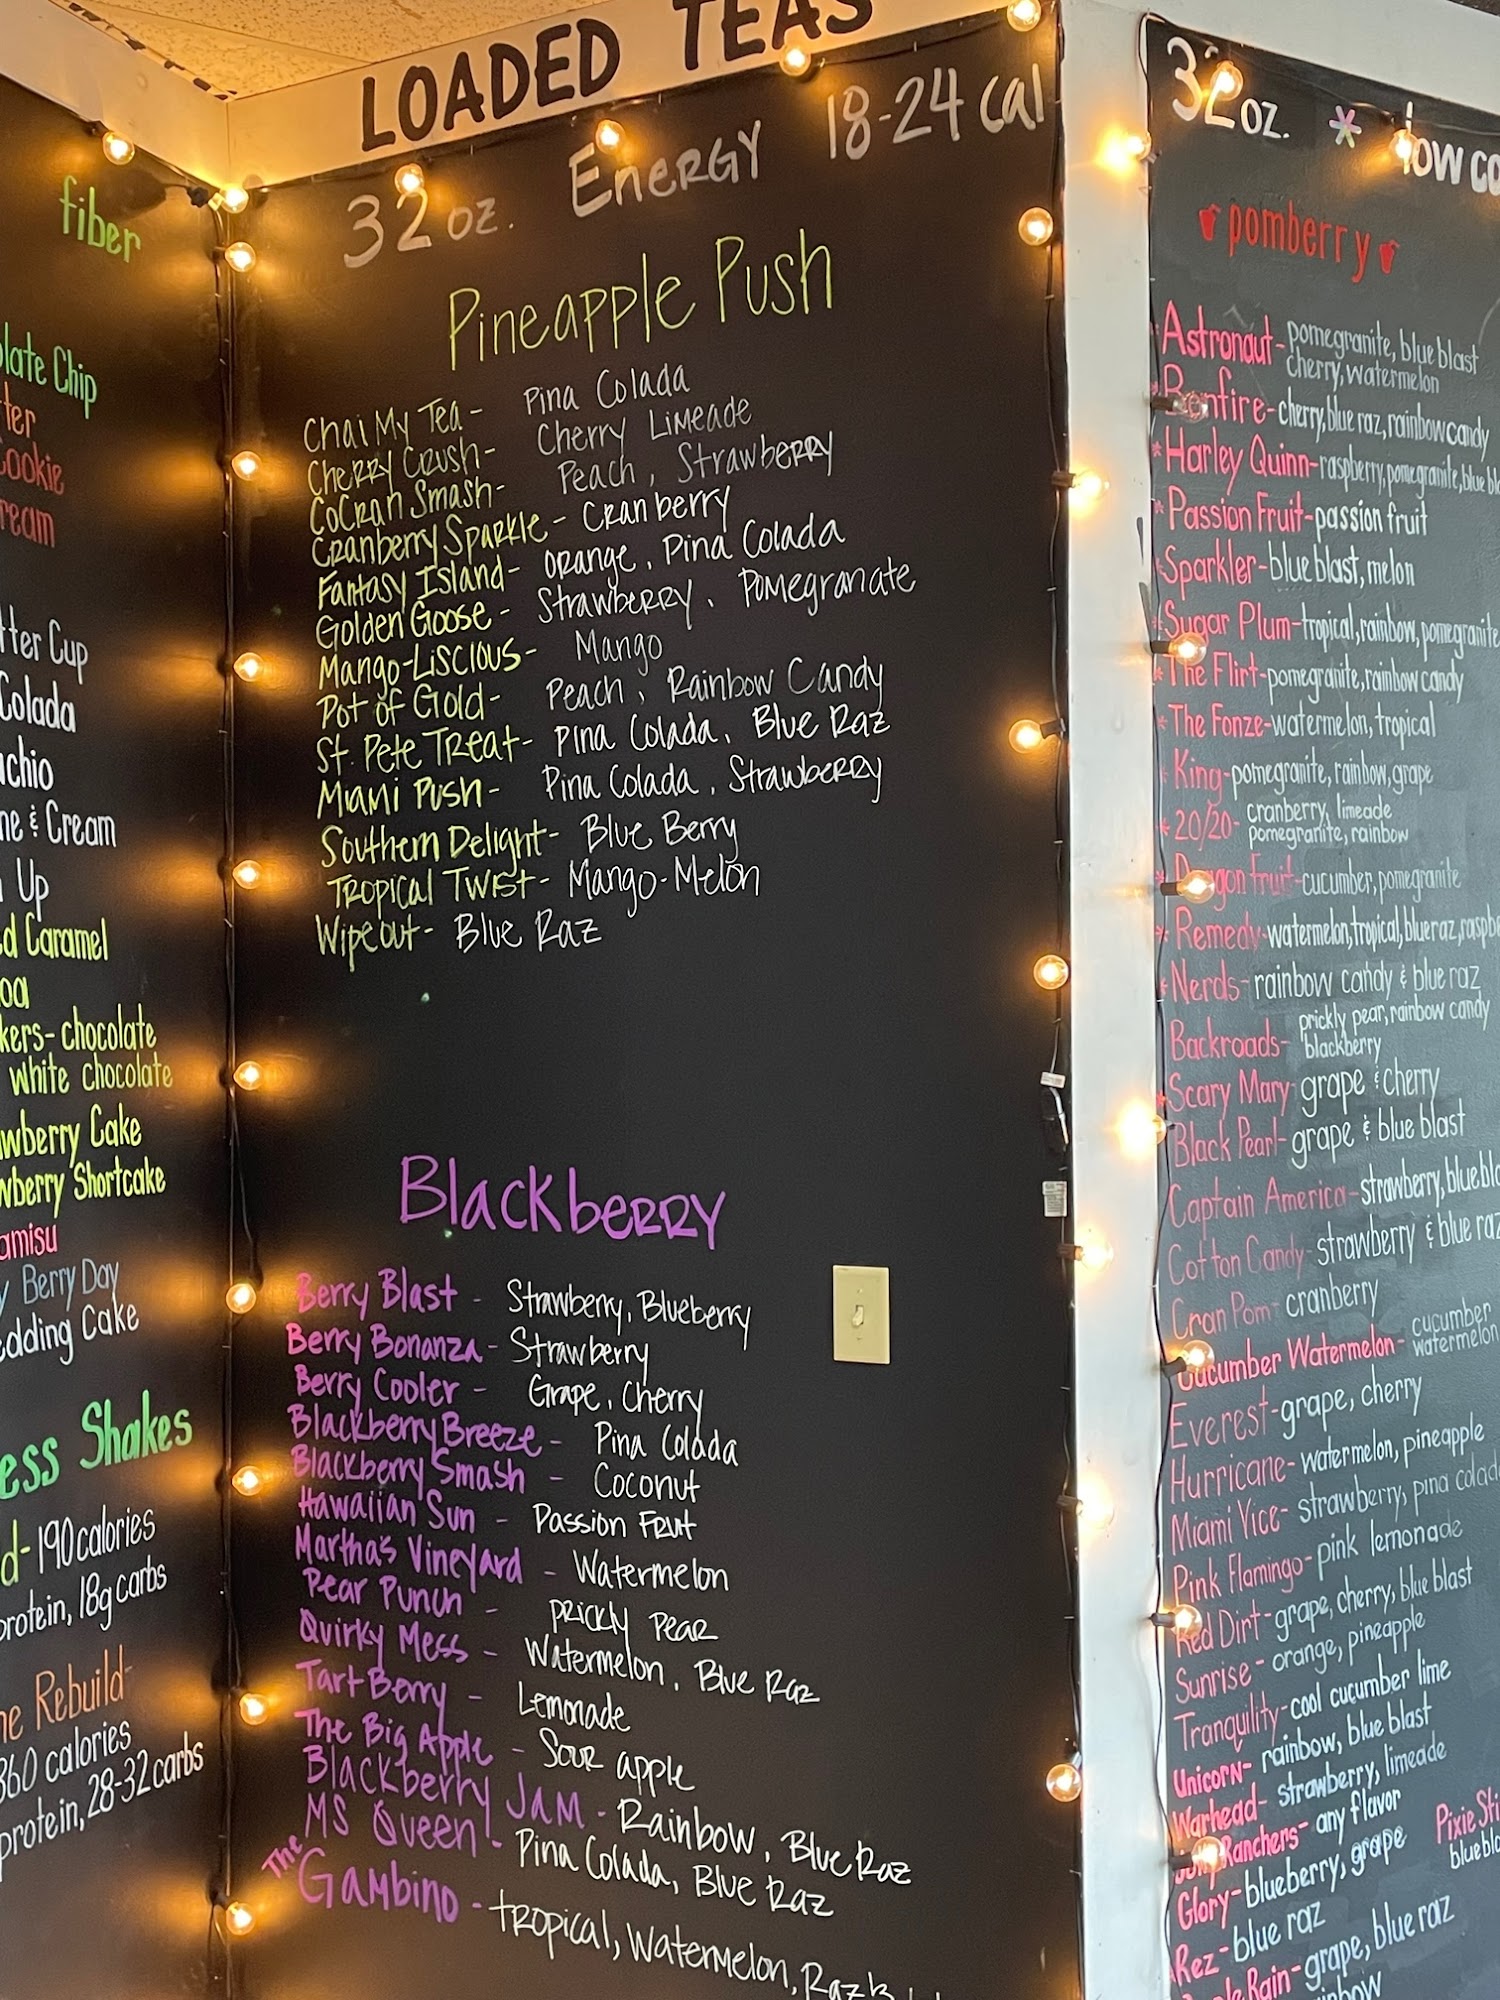 fiber
Chip
Cookie
Cup
Colada
& Cream
Up
Caramel
chocolate
white chocolate
Cake
Shortcake
Berry Day
Cake
Shakes
190 calories
protein, 18g carbs
Rebuild-
calories
protein, 28-32 carbs
LOADED TEAS
32 oz. Energy 18-24 cal
Pineapple Push
Chai My Tea - Pina Colada
Cherry Crush - Cherry Limeade
CoCran Smash - Peach, Strawberry
Cranberry Sparkle - Cranberry
Fantasy Island - Orange, Pina Colada
Golden Goose - Strawberry, Pomegranate
Mango-Liscious - Mango
Pot of Gold - Peach, Rainbow Candy
St. Pete Treat - Pina Colada, Blue Raz
Miami Push - Pina Colada, Strawberry
Southern Delight - Blue Berry
Tropical Twist - Mango-Melon
Wipeout - Blue Raz
Blackberry
Berry Blast - Strawberry, Blueberry
Berry Bonanza - Strawberry
Berry Cooler - Grape, Cherry
Blackberry Breeze - Pina Colada
Blackberry Smash - Coconut
Hawaiian Sun - Passion Fruit
Martha's Vineyard - Watermelon
Pear Punch - Prickly Pear
Quirky Mess - Watermelon, Blue Raz
Tart Berry - Lemonade
The Big Apple - Sour apple
Blackberry Jam - Rainbow, Blue Raz
MS Queen! - Pina Colada, Blue Raz
The Gambino - tropical, Watermelon,
32 oz. * low
pomberry
Astronaut - pomegranite, blue blast
cherry, watermelon
* Bonfire - cherry, blue raz, rainbow candy
* Harley Quinn - raspberry, pomegranite, blue
* Passion Fruit - passion fruit
* Sparkler - blue blast, melon
* Sugar Plum - tropical, rainbow, pomegranite
* The Flirt - pomegranite, rainbow candy
* The Fonze - watermelon, tropical
* King - pomegranite, rainbow, grape
* 20/20 - cranberry, limeade
pomegranite, rainbow
* Dragon fruit - cucumber, pomegranite
* Remedy - watermelon, tropical, blue raz,
* Nerds - rainbow candy & blue raz
Backroads - prickly pear, rainbow candy
blackberry
* Scary Mary - grape & cherry
Black Pearl - grape & blue blast
Captain America - strawberry, blue
Cotton Candy - strawberry & blue raz
Cran Pom - cranberry
Cucumber Watermelon - cucumber
watermelon
Everest - grape, cherry
Hurricane - watermelon, pineapple
Miami Vice - strawberry, pina colada
Pink Flamingo - pink lemonade
Red Dirt - grape, cherry, blue blast
Sunrise - orange, pineapple
Tranquility - cool cucumber lime
Unicorn - rainbow, blue blast
Warhead - strawberry, limeade
Ranchers - any flavor
Pixie
Glory - blueberry, grape
blue
Rez - blue raz
Rain - grape, blue raz